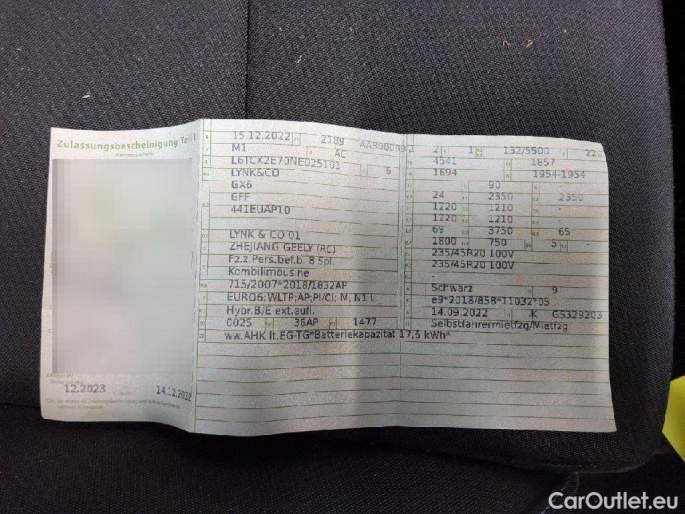 Zulassungsbescheinigung Teil I
12.2023 14.12.2022
15.12.2022 2189 AAB00009
M1 AC
L6TCX2E70NE025101 6
LYNK&CO
GX6
GFF
441EUAP10
LYNK & CO 01
ZHEJIANG GEELY (RC)
Fz.z.Pers.bef.b. 8 Spl.
Kombilimousine
715/2007*2018/1832AP
EURO6;WLTP;AP;PI/CI; N, N1 I
Hybr.B/E ext.aufl.
0025 36AP 1477
ww.AHK lt.EG-TG*Batteriekapazität 17,6 kWh*
2 1 132/5500 220
4541 1857
1694 1954-1954
90
24 2350 2350
1220 1210 -
1220 1210 -
69 3750 65
1800 750 5 -
235/45R20 100V
235/45R20 100V
-
Schwarz 9
e9*2018/858*11032*05
14.09.2022 K GS329203
Selbstfahrermietfzg/Mietfzg
CarOutlet.eu